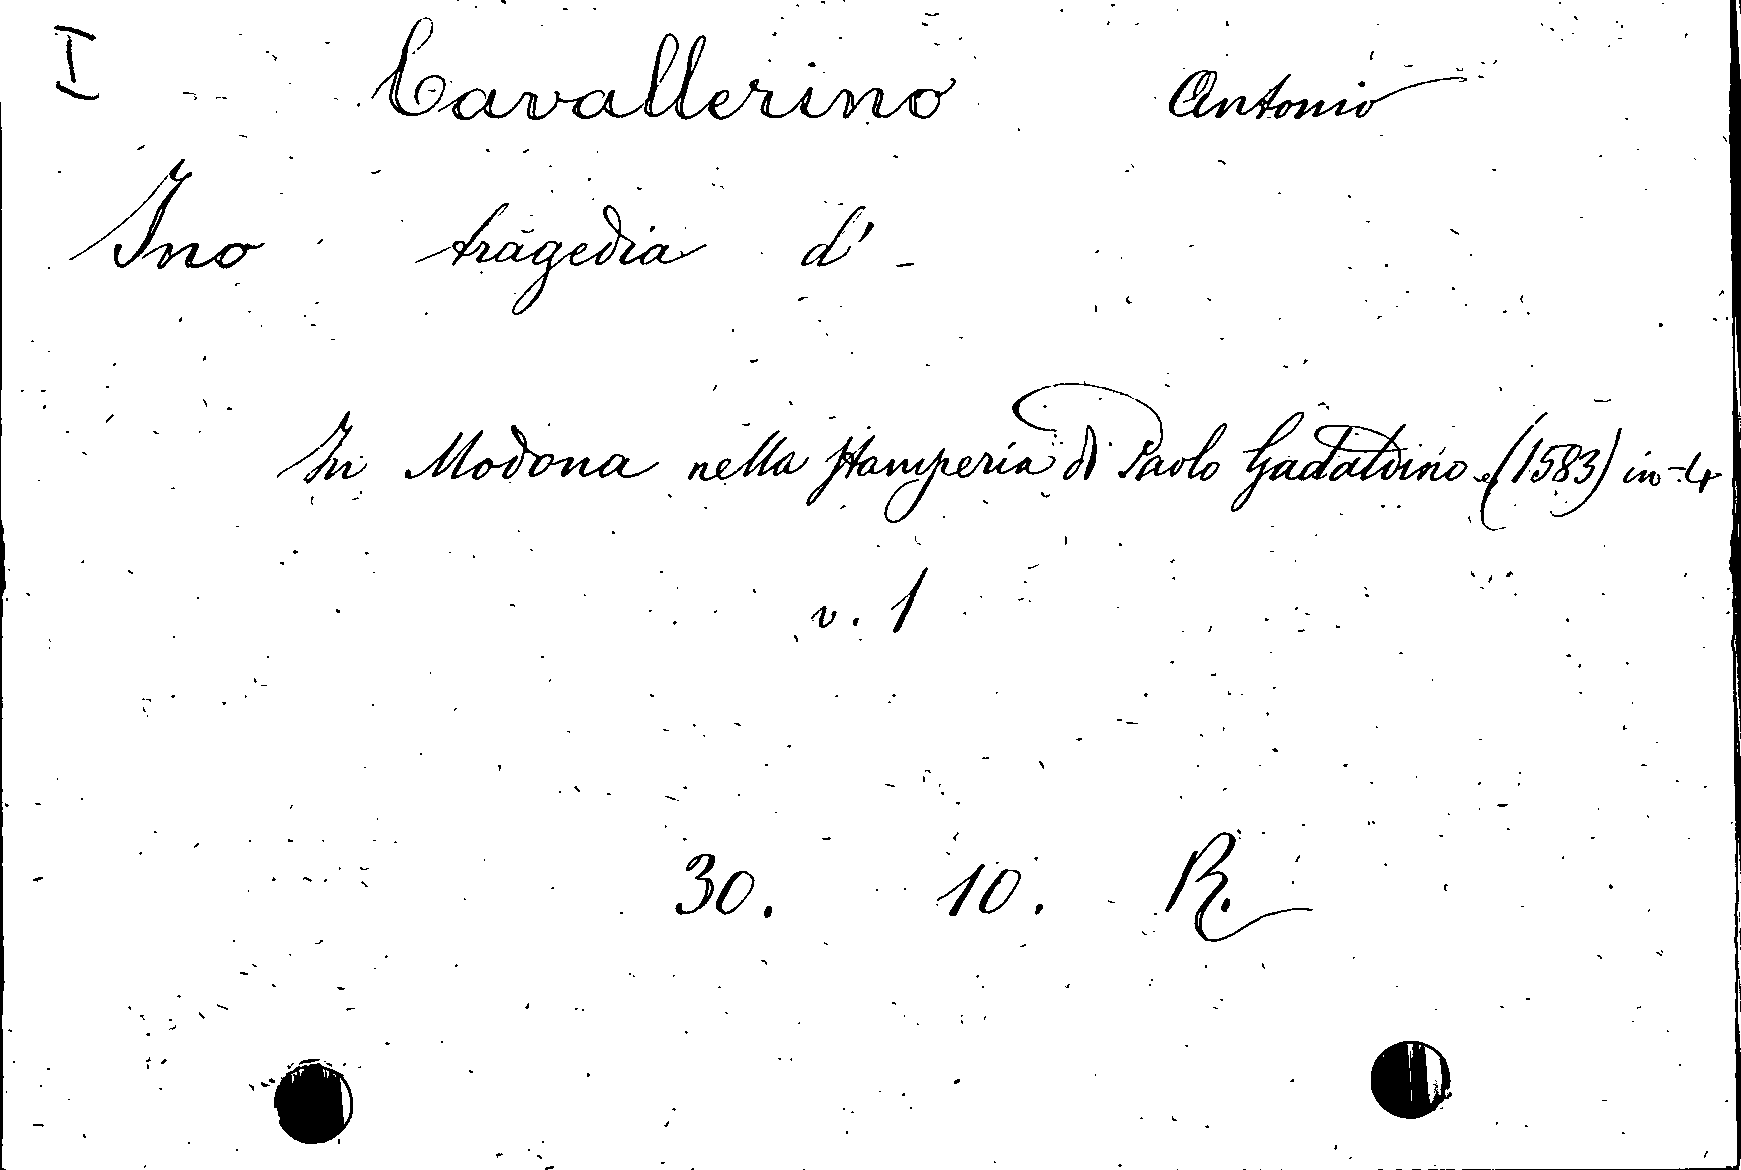 I Cavallerino Antonio
Ino tragedia d' -
In Modona nella stamperia di Paolo Gadaldino (1583) in-4
v. 1
30. 10. R.